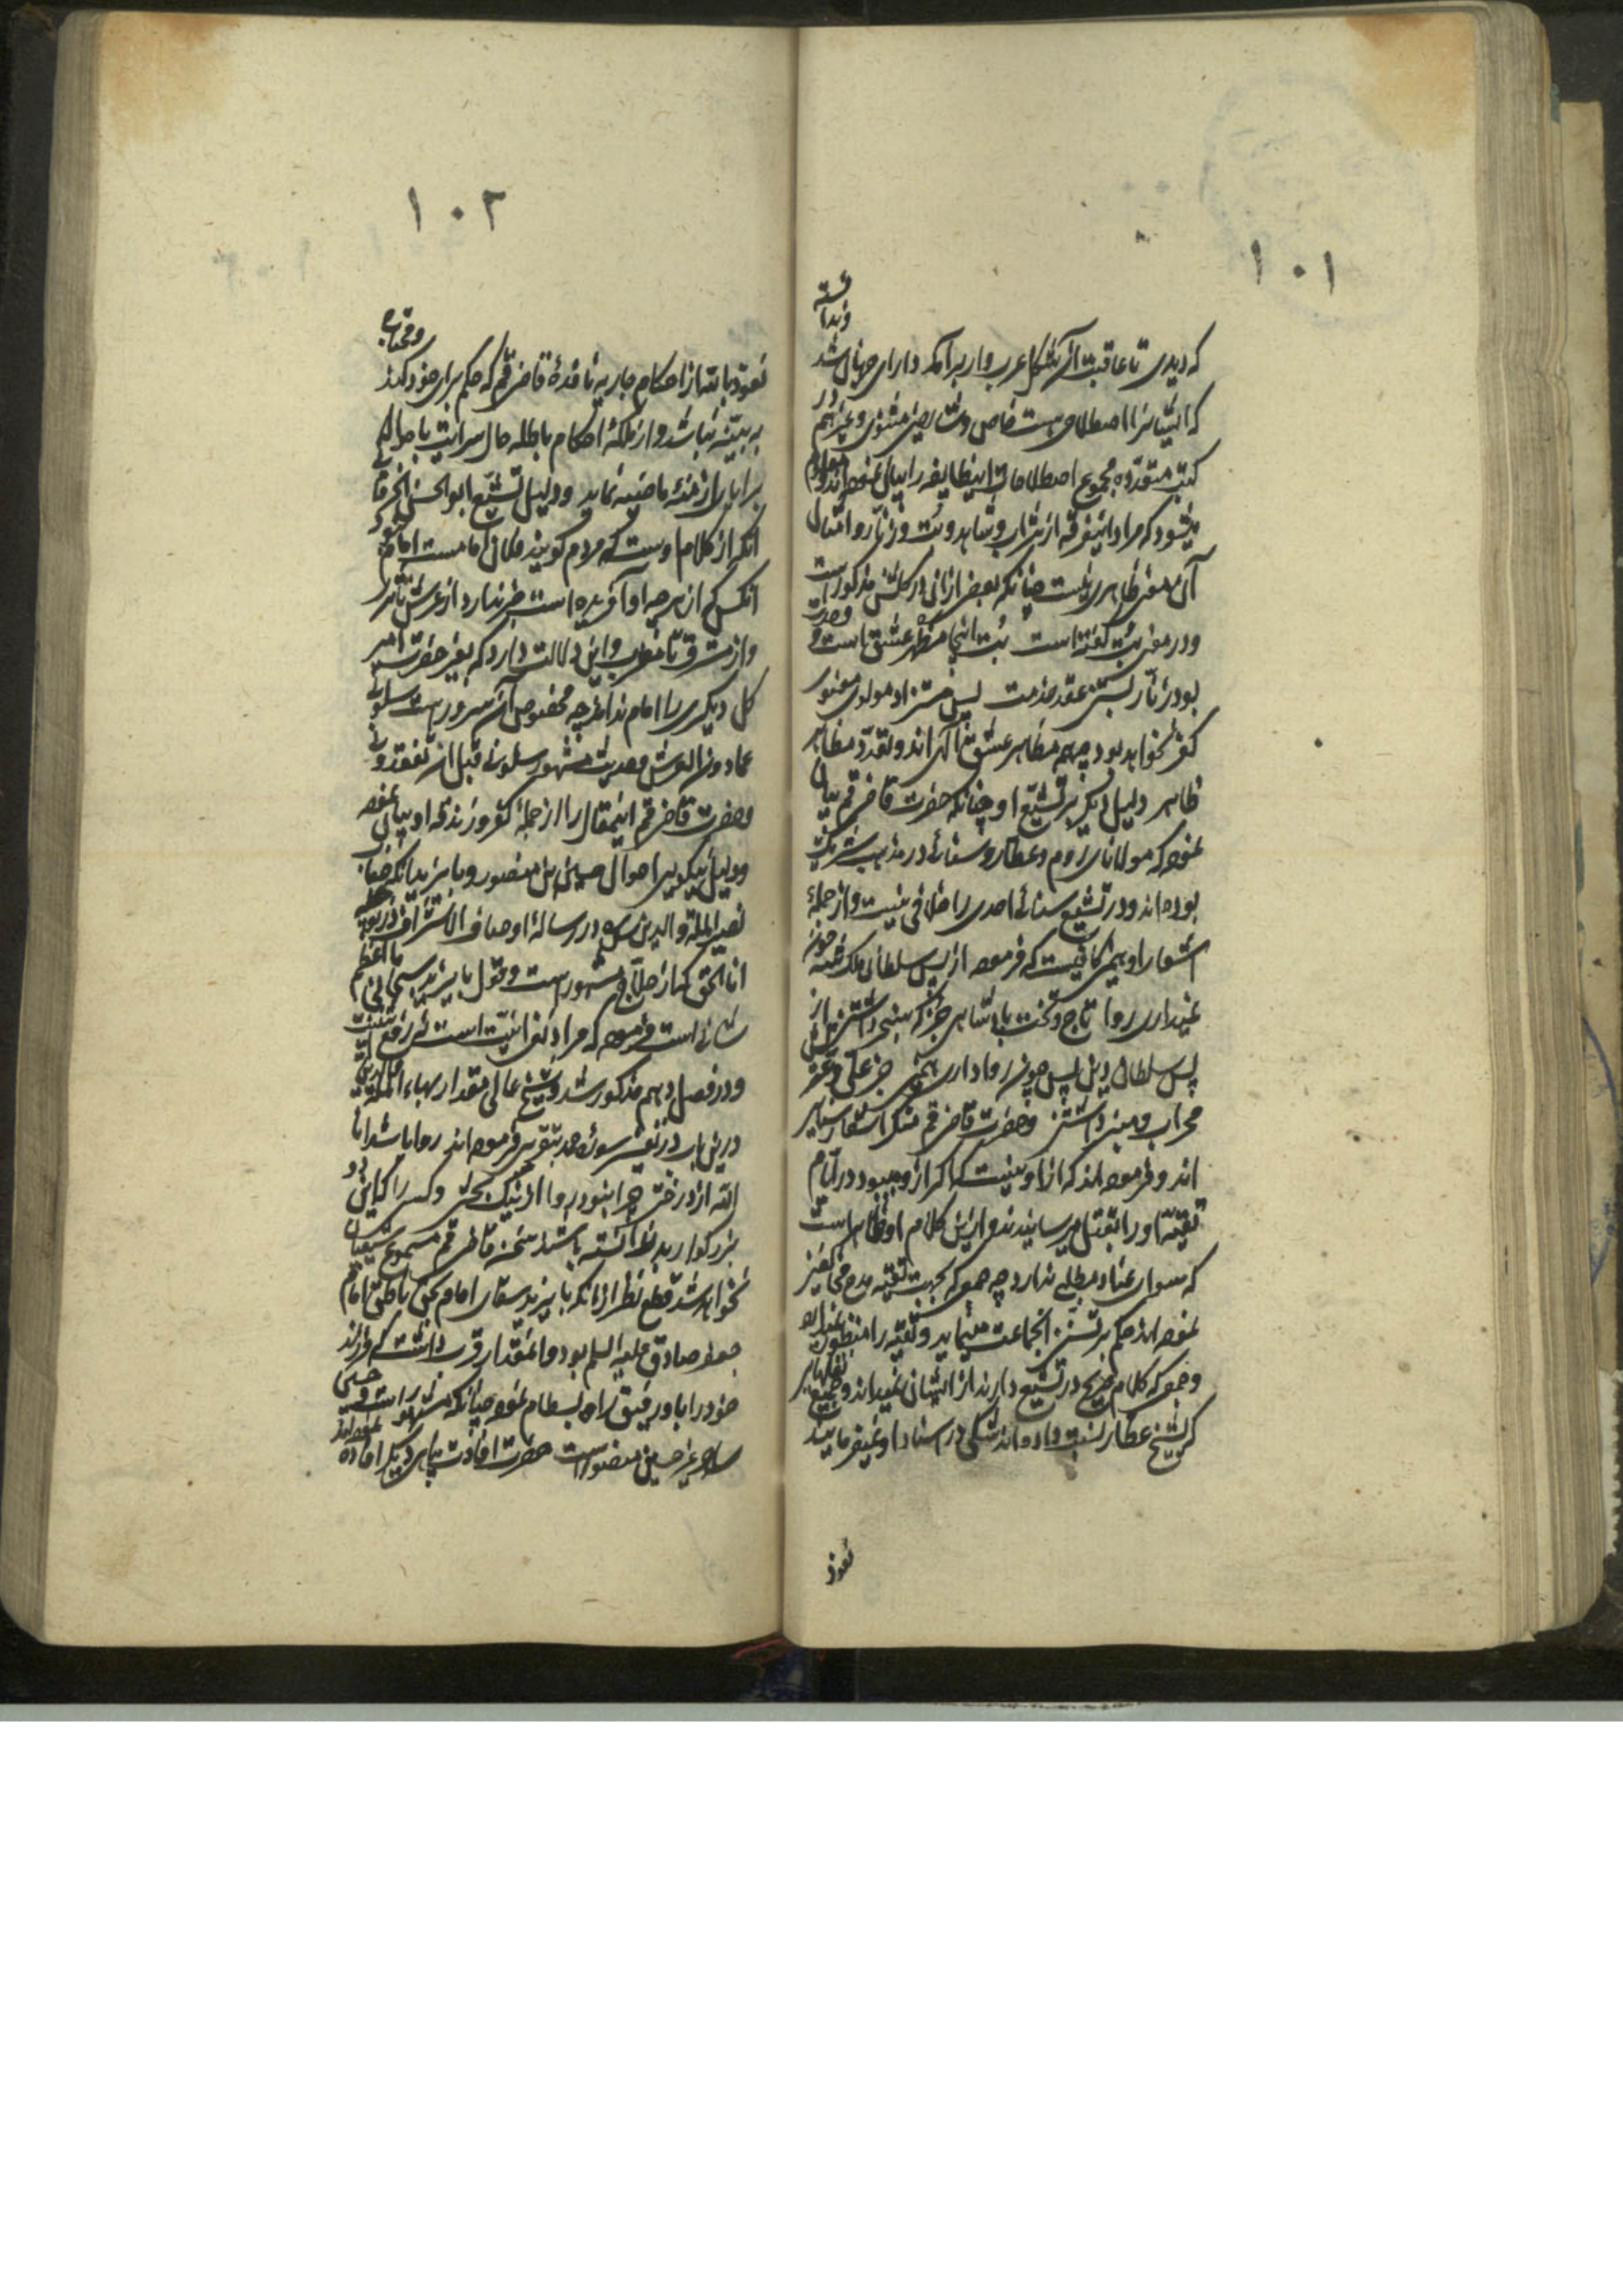 ۱۰۱
که دیدی تا عاقبت آن شکل عرب وار برآمد دارای جهان شد
که ایشانرا اصطلاحی هست خاص و شارحین مثنوی و غیرهم در
کتب متعدده مجموع اصطلاحات اینطایفه را بیان نموده اند و معلوم
میشود که مراد اینفرقه از شراب و شاهد و بت و زنار و امثال
آن معنی ظاهری نیست چنانکه بعضی از آن در گلشن مذکور است
و در معنی بت گفته است بت اینجا مظهر عشق است و وحدت
بود زنار بستن عقد خدمت پس مستزاد مولوی معنوی
کفر نخواهد بود چه همه مظاهر عشق الهی اند و تعدد مظاهر
ظاهر دلیل دیگر بر تشیع او چنانکه حضرت قاضی قم بیان
نموده که مولانای روم و عطار و سنائی در مذهب شریک
بوده اند و در تشیع سنائی احدی را خلافی نیست و از جمله
اشعار او همین کافیست که فرموده از پس سلطان ملکشه چون
نمیداری روا تاج و تخت پادشاهی جز که سنجر داشتن
پس سلطان دین پس چون روا داری همی جز علی و عترتش
محراب و منبر داشتن و حضرت قاضی قم منکر اشعار سنایی
اند و فرموده اند که از او نیست که اگر از او میبود در ایام
تقیه او را بقتل میرسانیدند و از این کلام او ظاهر است
که سوای عناد مطلبی ندارد چه جمعی که بجهت تقیه مدح مخالفین
نموده اند حکم بر تسنن انجماعت مینماید و تقیه را منظور نمیدارد
و جمعی که کلام صریح در تشیع دارند از ایشان نمیداند و جمیع
که بشیخ عطار نسبت داده اند شکی در اسناد او نمیفرمایند
نعوذ
۱۰۲
نعوذ بالله از احکام جاریه نافذهٔ قاضی قم که حکم برای خود کند
به بینه نباشد و از ملکهٔ احکام باطله حال سرایت باحوال
برایا از ازمنهٔ ماضیه نماید و دلیل تشیع ابوالحسن الخرقانی
آنکه از کلام اوست که مردم گویند فلانی امامست امام نبود
آنکس که از هرچه او آفریده است خبر ندارد از عرش تا ثری
و از مشرق تا مغرب و این دلالت دارد که بغیر حضرت امیر
کل دیگری را امام نداند چه مخصوص آن سرور است سلونی
عما دون العرش و حدیث مشهور سلونی قبل ان تفقدونی
و حضرت قاضی قم اینمقال را از جملهٔ کفر و زندقه او بیان نموده
و دلیل نیکویی احوال حسین بن منصور و بایزید آنکه جناب
نصیر الملة والدین در رسالهٔ اوصاف الاشراف
انا الحق که از حلاج مشهور است و قول بایزید سبحانی ما اعظم
شانی است فرموده که مراد نفی انیت است
و در فصل دهم مذکور شد و شیخ عالی مقدار بهاء الملة والدین
درین باب در تفسیر سورهٔ حمد بتقریبی فرموده اند روا باشد انا
الله از درختی چرا نبود روا از نیک بختی و کسی را که این دو
بزرگوار بد ندانسته باشند سخن قاضی قم مسموع شیعیان
نخواهد شد قطع نظر از آنکه بایزید سقای امام بحق ناطق امام
جعفر صادق علیه السلم بود و آنمقدار قرب داشت که فرزند
خود را با او رفیق راه بسطام نموده چنانکه مشهور است
حسین منصور است حضرت افادت پناهی دیگر افاده نموده اند